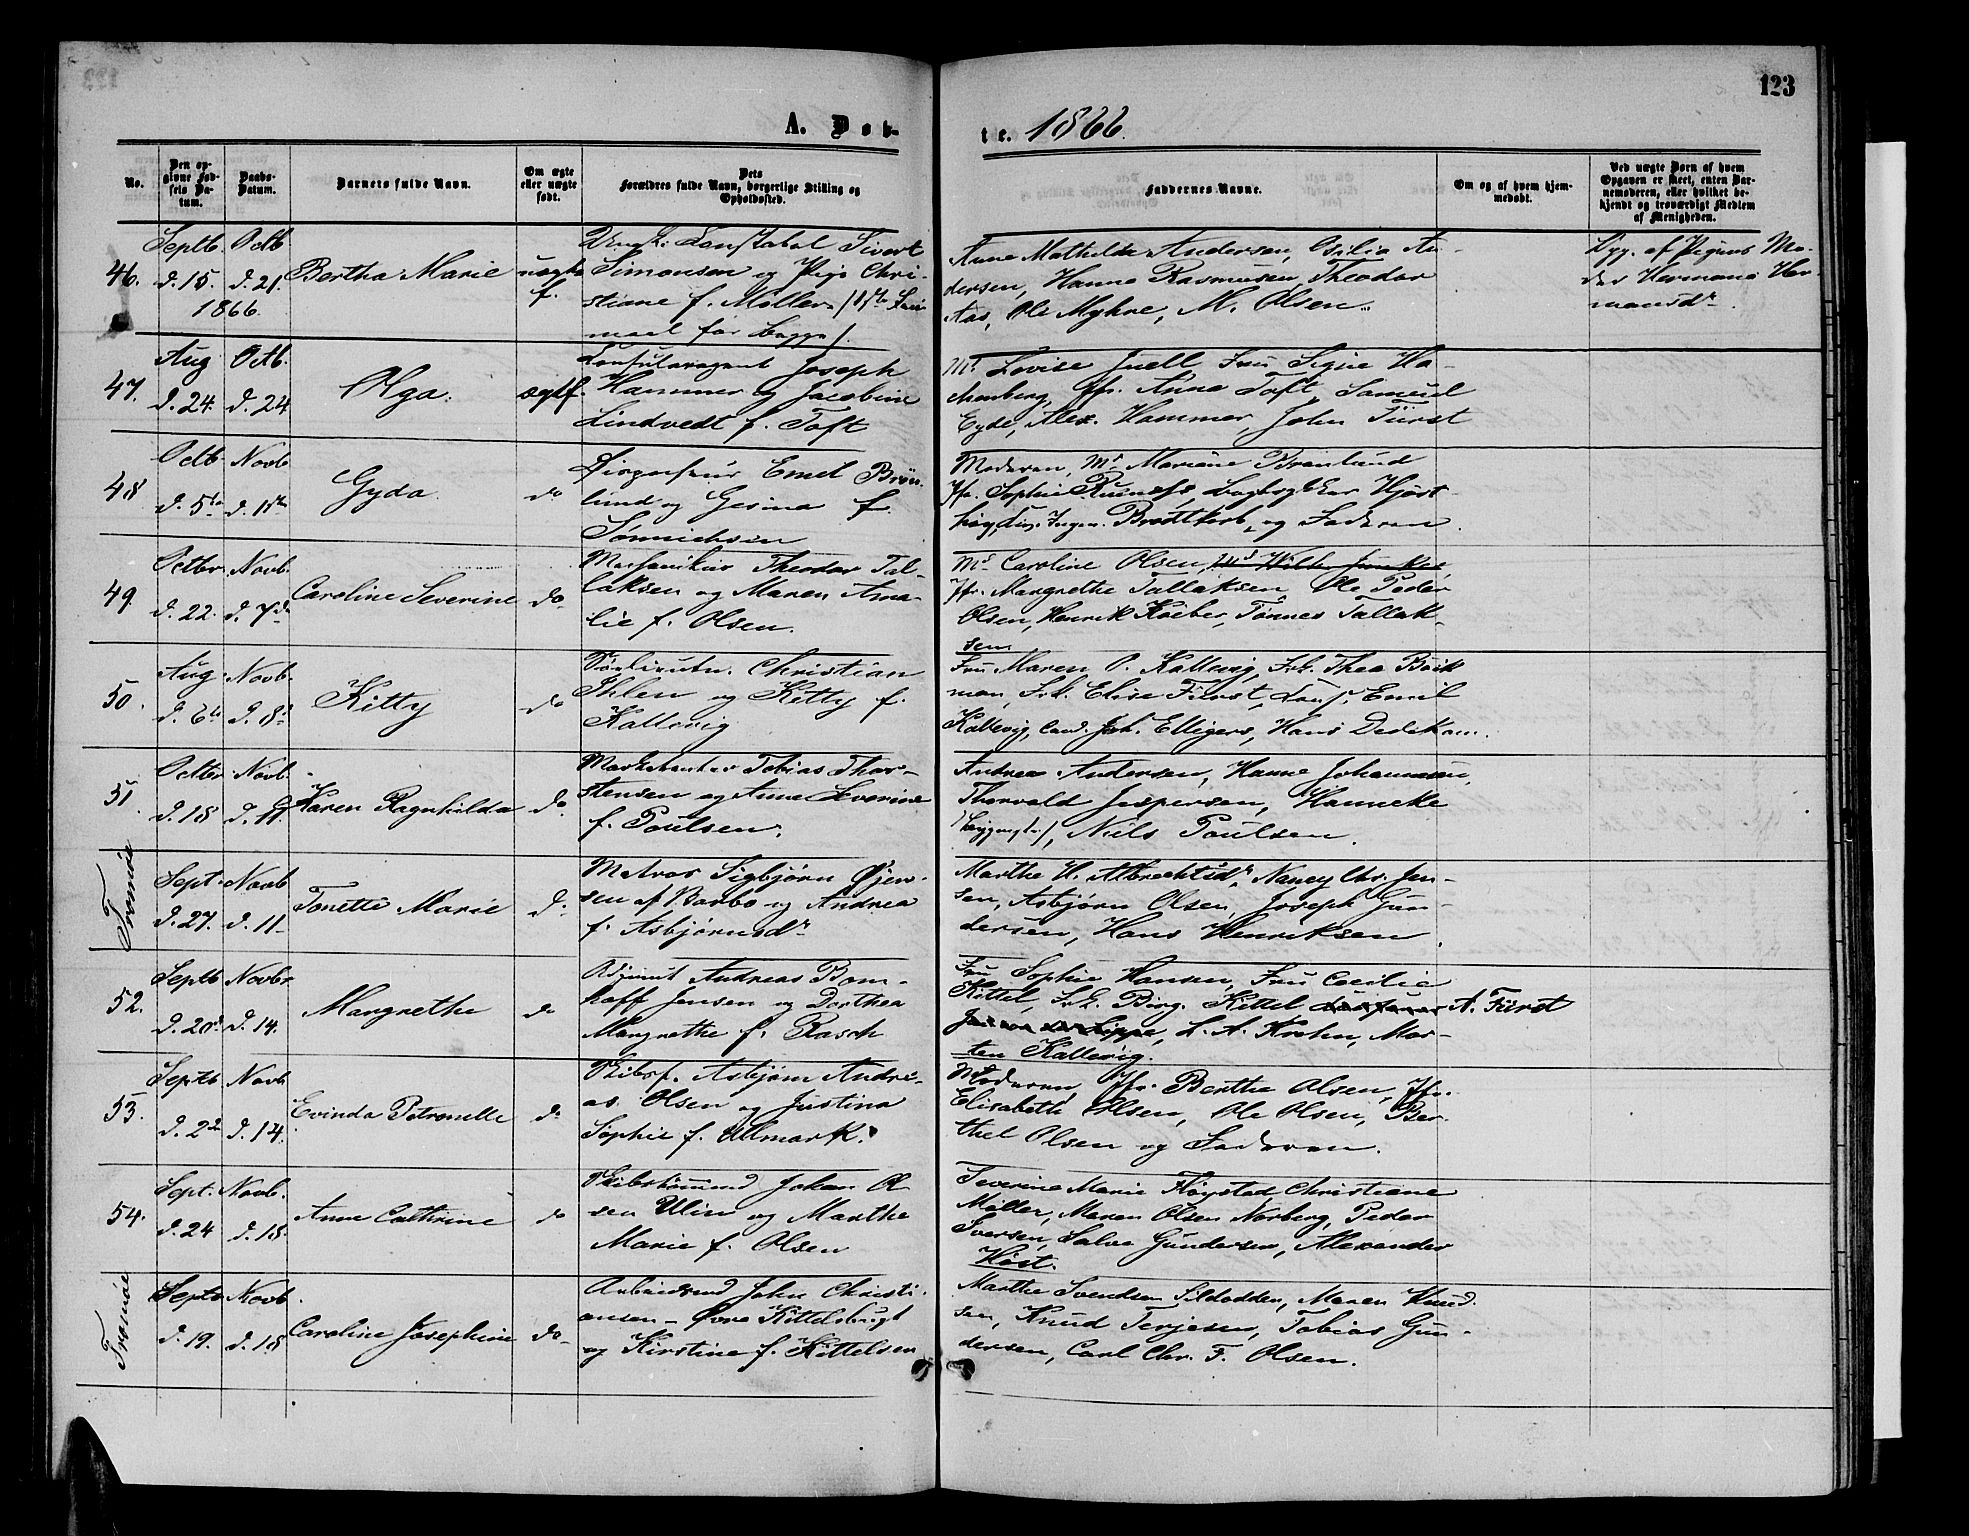 123
A. Døb-
te. 1866.
No.
Den opgivne Fødsels Datum.
Daabs-Datum.
Barnets fulde Navn.
Om ægte eller uægte født.
Dets Forældres fulde Navn, borgerlige Stilling og Opholdssted.
Faddernes Navne.
Om og af hvem hjemmedøbt.
Ved uægte Børn af hvem Opgaven er skeet, enten Barnemoderen, eller hvilket bekjendt og troværdigt Medlem af Menigheden.
46. Septb. d. 15. 1866 Octb d. 21. Bertha Marie uægte f.
Constabel Sivert
Simonsen og Pige Chri-
stiane f. Møller
maal for begge).
Anne Mathilde Andersen, An-
dersen, Hanne Rasmussen, Theodor
Aas, Ole Myhre, M. Olsen.
Opg. af Pigens Mo-
der Hermana Her-
mansdr.
47. Aug d. 24. Octb. d. 24 Olga. ægtf.
Consularagent Joseph
Hammer og Jacobine
Lindvedt f. Toft
Md Lovise Juell Fru Signe
Jfr. Anna Toft, Samuel
Eyde, Alex. Hammer, John Fürst
48 Octb d. 5te Novb d. 1ste Gyda. do
Emil Brøn-
lund og Gesina f.
Sønnichsen
Moderen, Md Mariane Brønlund
Jfr. Sophie
Brodtkorb, og Faderen.
49. Octbr d. 22. Novb. d. 7de Caroline Severine do
Theodor Tal-
laksen og Maren Ama-
lie f. Olsen.
Md Caroline Olsen,
Jfr. Margrethe Tallaksen, Ole Peder
Olsen, Henrik Køiber, Tønnes Tallak-
sen
50. Aug d. 6te Novb. d. 8de Kitty do
Christian
Ihlen og Kitty f.
Kallevig
Fru Maren P. Kallevig, Frk. Thea
Frk. Elise Fürst, Emil
Kallevig, Cand. Joh. Elligers, Hans Dedekam.
51 Octbr d. 18 Novb. d. 11. Karen Ragnhilda do
Tobias Thor-
stensen og Anne Severine
f. Poulsen.
Andrea Andersen, Hanne Johannesen,
Thorvald Jespersen, Hanneke
Niels Poulsen.
Tromøe
Sept. d. 27. Novb d. 11 Tonette Marie do
Matros Sigbjørn Øjen-
sen af Barbo og Andrea
f. Asbjørnsdr
Marthe H. Albrechtsdr, Nancy Chr. Jen-
sen, Asbjørn Olsen, Joseph Gun-
dersen, Hans Henriksen.
52. Septb d. 20de Novbr d. 14. Margrethe do
Adjunct Andreas Bom-
hoff Jensen og Dorthea
Margrethe f. Rasch
Fru Sophie Hansen, Fru Cecilie
Kittel, Frk. Birg. Kittel A. Fürst
L. A. Krohn, Mor-
ten Kallevig.
53. Septb d. 22 Novb d. 14. Evinda Petronelle do
Skibsf. Asbjørn Andre-
as Olsen og Justina
Sophie f. Ulmark.
Moderen, Jfr. Berthe Olsen, Jfr.
Elisabeth Olsen, Ole Olsen, Ber-
thel Olsen og Faderen.
54. Sept. d. 24 Novb. d. 18. Anne Cathrine do
Skibstømmermd Johan Ol
sen Ulin og Marthe
Marie f. Olsen
Severine Marie Fløystad, Christiane
Møller, Maren Olsen Norberg, Peder
Iversen, Salve Gundersen, Alexander
Høst.
Tromøe
Septb d. 19. Novb. d. 18 Caroline Josephine do
Arbeidsmd John Christi-
ansen Øvre Kittelsbugt
og Kirstine f. Kittelsen
Marthe Svendsen Sildodden, Maren Knud-
sen, Knud Terjesen, Tobias Gun-
dersen, Carl Chr. F. Olsen.